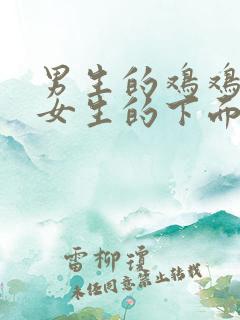 男生的鸡鸡
女生的下面
雷柳琼
未经同意禁止转载